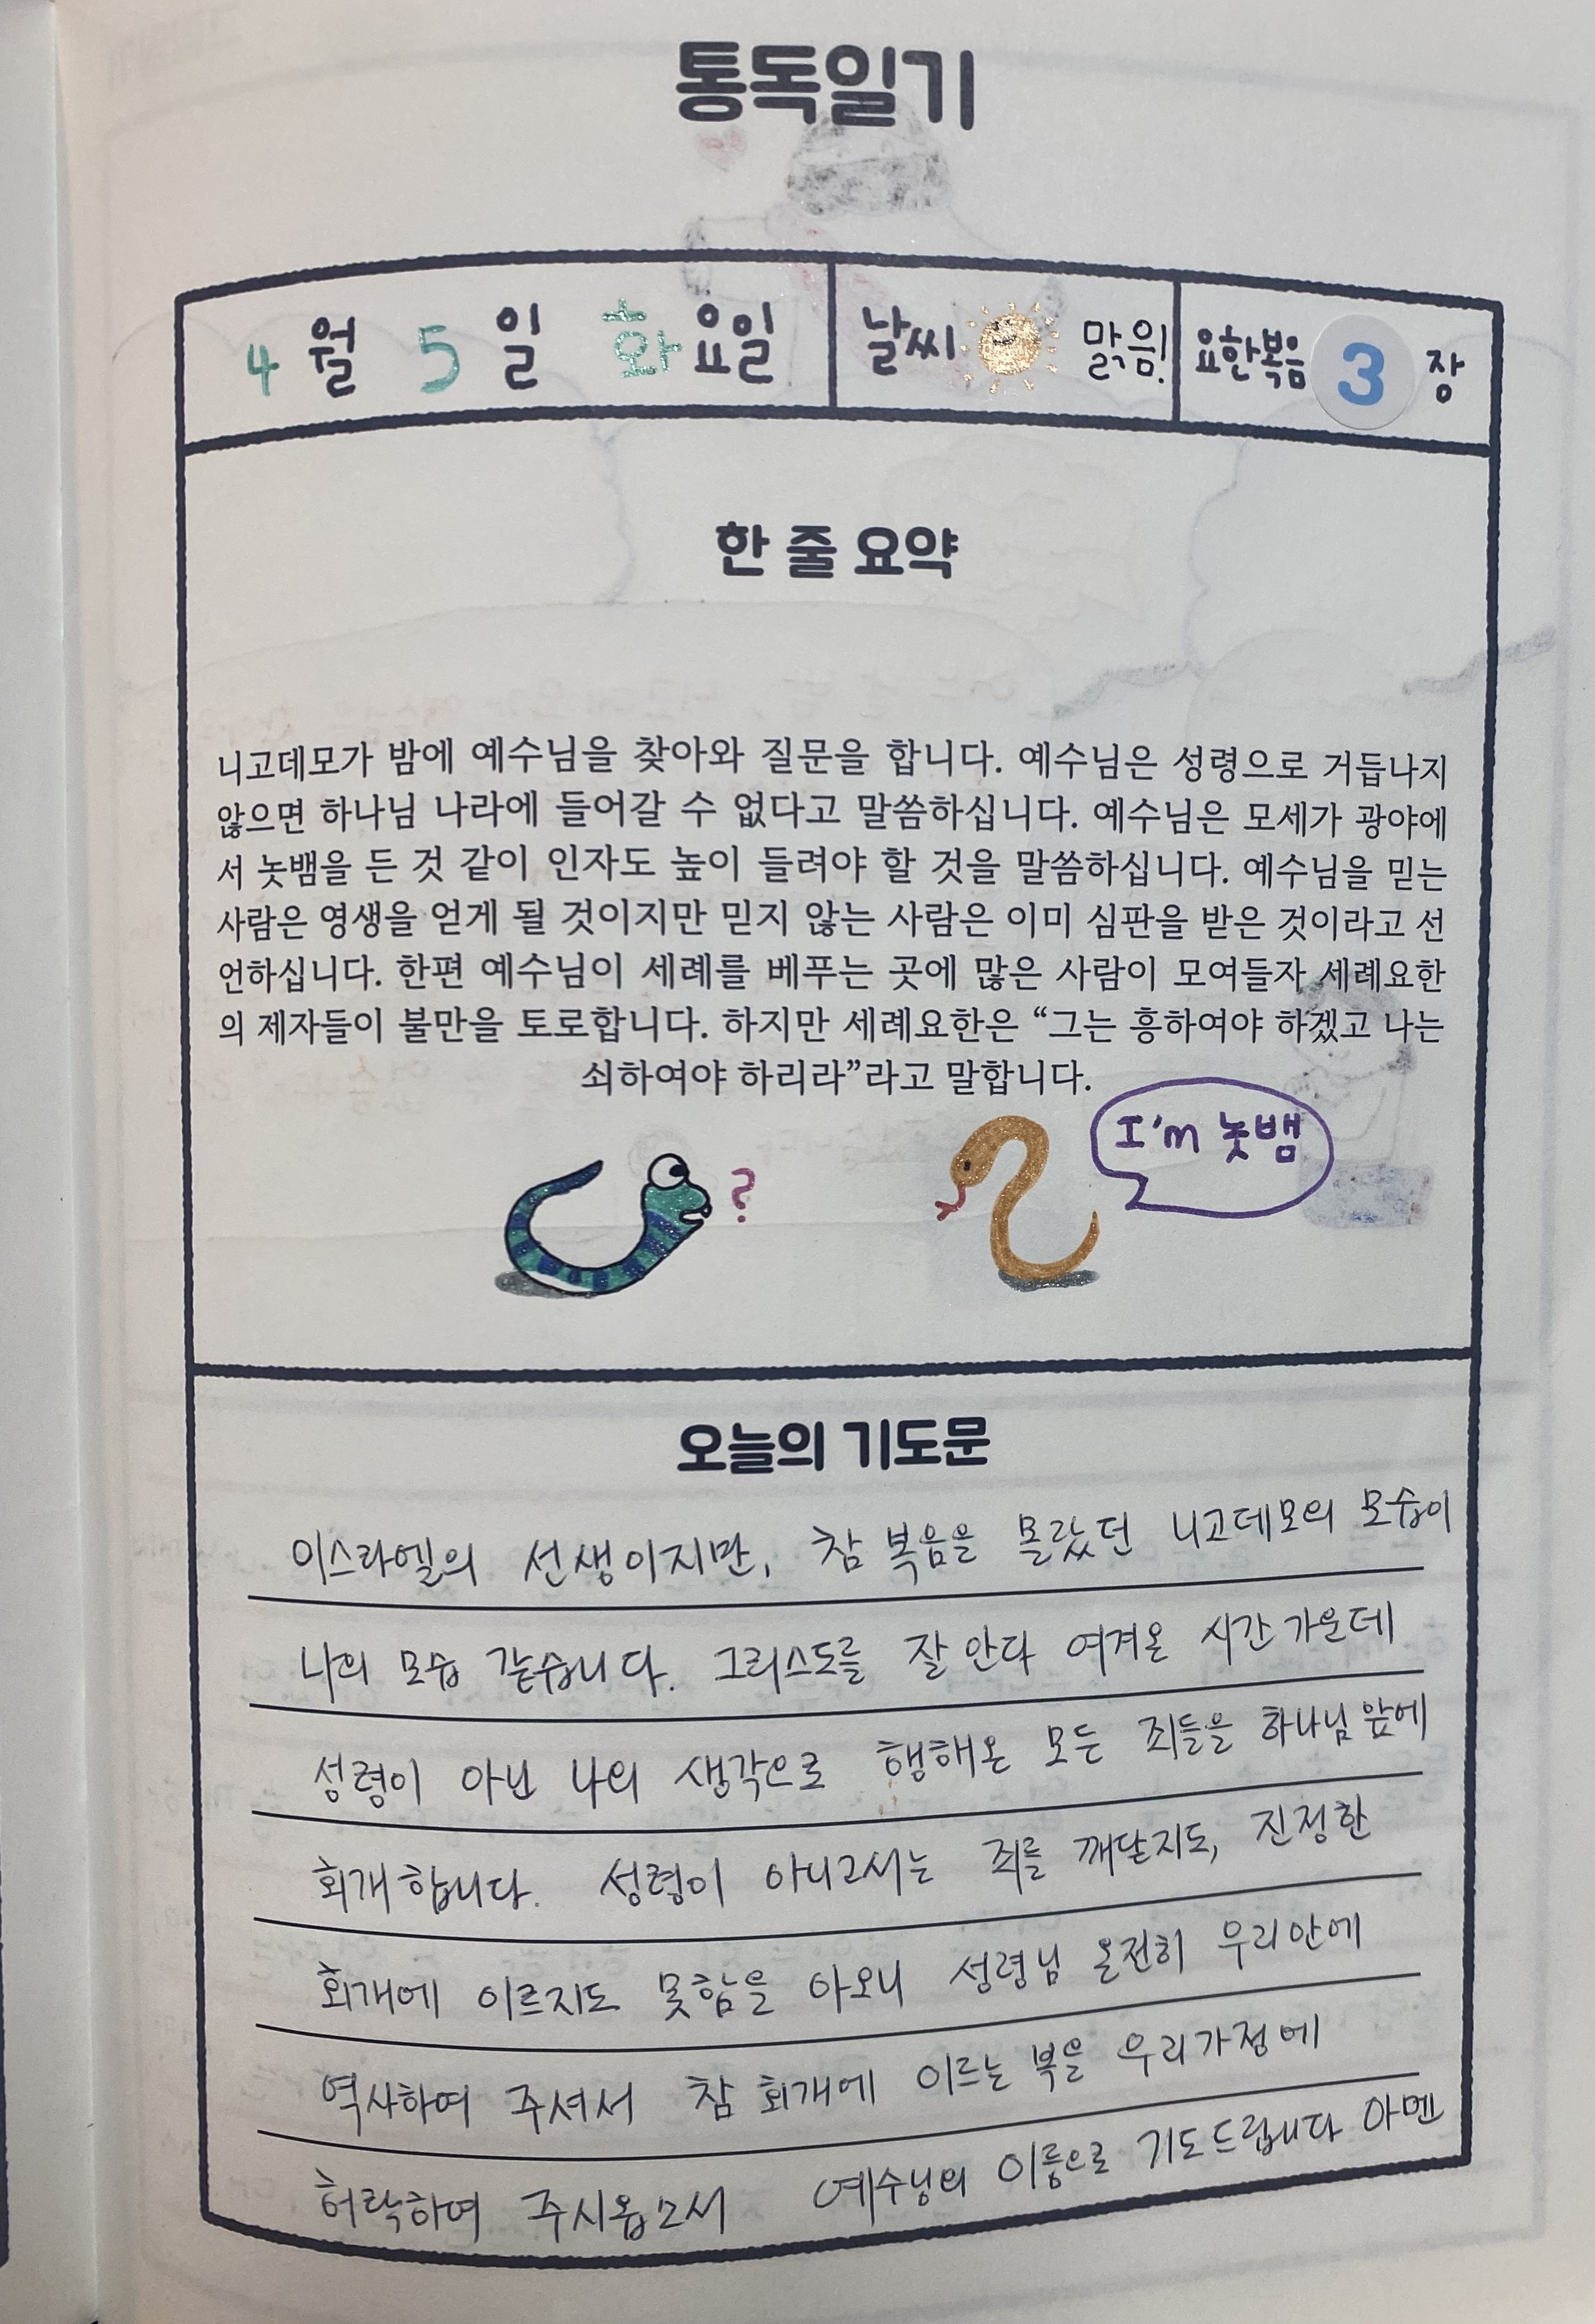 통독일기
4월 5일 화요일 날씨 맑음! 요한복음 3장
한 줄 요약
니고데모가 밤에 예수님을 찾아와 질문을 합니다. 예수님은 성령으로 거듭나지
않으면 하나님 나라에 들어갈 수 없다고 말씀하십니다. 예수님은 모세가 광야에
서 놋뱀을 든 것 같이 인자도 높이 들려야 할 것을 말씀하십니다. 예수님을 믿는
사람은 영생을 얻게 될 것이지만 믿지 않는 사람은 이미 심판을 받은 것이라고 선
언하십니다. 한편 예수님이 세례를 베푸는 곳에 많은 사람이 모여들자 세례요한
의 제자들이 불만을 토로합니다. 하지만 세례요한은 “그는 흥하여야 하겠고 나는
쇠하여야 하리라”라고 말합니다.
?
I'm 놋뱀
오늘의 기도문
이스라엘의 선생이지만, 참 복음을 몰랐던 니고데모의 모습이
나의 모습 같습니다. 그리스도를 잘 안다 여겨온 시간 가운데
성령이 아닌 나의 생각으로 행해온 모든 죄들을 하나님 앞에
회개합니다. 성령이 아니고서는 죄를 깨닫지도, 진정한
회개에 이르지도 못함을 아오니 성령님 온전히 우리 안에
역사하여 주셔서 참 회개에 이르는 복을 우리가정에
허락하여 주시옵소서 예수님의 이름으로 기도드립니다 아멘